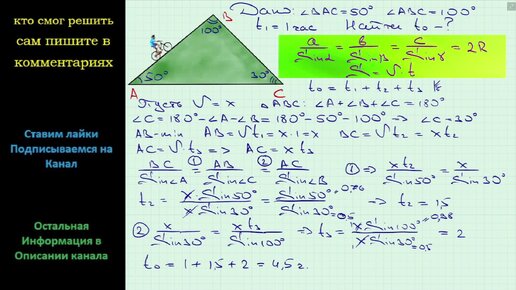 кто смог решить
сам пишите в
комментариях
Ставим лайки
Подписываемся на
Канал
Остальная
Информация в
Описании канала
B
100°
50°
30°
A
C
Дано: ∠BAC=50° ∠ABC=100°
t₁=1час Найти t₀-?
a/Sinα = b/Sinβ = c/Sinγ = 2R
S=V·t
t₀=t₁+t₂+t₃
Пусть V=x △ABC: ∠A+∠B+∠C=180°
∠C=180°-∠A-∠B=180°-50°-100° ⇒ ∠C=30°
AB-min AB=Vt₁=x·1=x BC=Vt₂=xt₂
AC=Vt₃ ⇒ AC=xt₃
BC/Sin∠A ①= AB/Sin∠C ②= AC/Sin∠B ①⇒ xt₂/Sin50° = x/Sin30°
t₂= x·Sin50°/x·Sin30° = Sin50°/Sin30° 0,76 0,5 → t₂=1,5
② x/Sin30° = xt₃/Sin100° ⇒ t₃= x·Sin100°/x·Sin30° 0,98 0,5 = 2
t₀=1+1,5+2=4,5г.